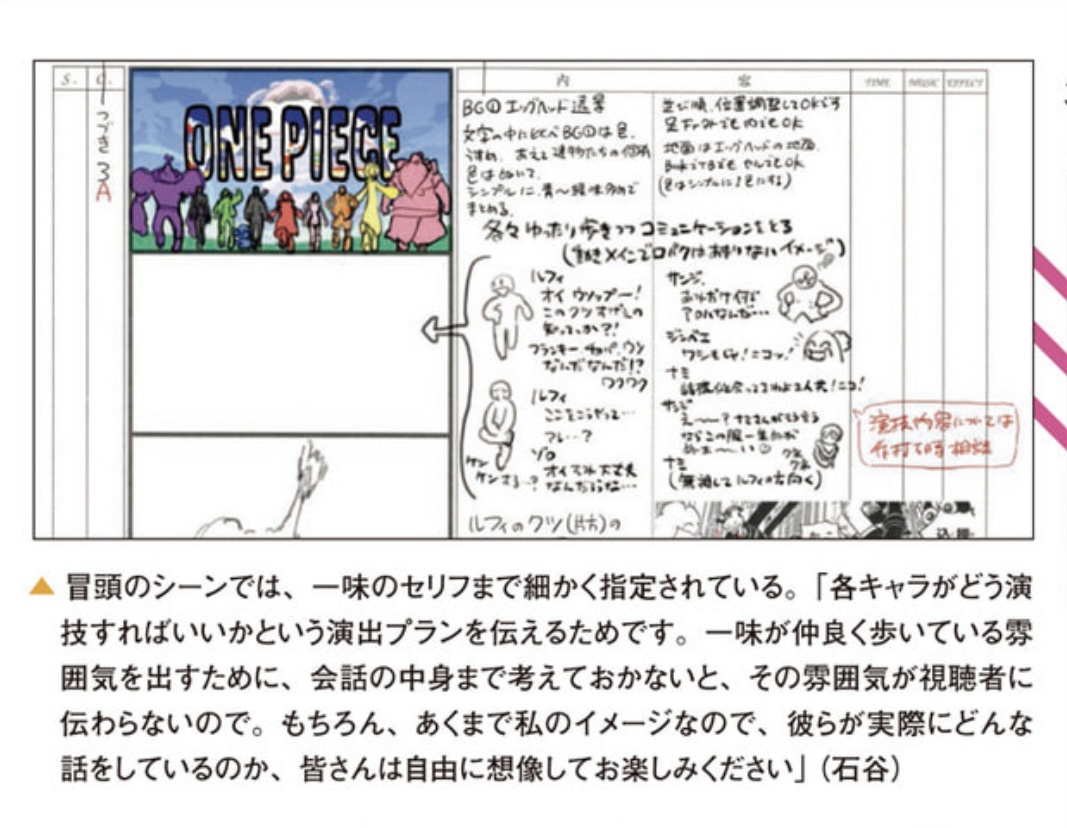 S.
C.
内
容
TIME
MUSIC
EFFECT
つづき
3
A
ONE PIECE
BG① エッグヘッド遠景
文字の中に比べBG①は色、
うすめ、あえて建物たちの個別
色はぬいて、
シンプルに、青〜緑味多めで
まとめる。
並び順、位置調整してOKです
足下ハみでも内でもOK
地面はエッグヘッドの地面、
(色はシンプルに1色にする)
各々ゆったり歩きつつコミュニケーションをとる
(動きメインで口パクはあまりないイメージ)
ルフィ
オイ ウソップー!
このクツすげェの
知ってっか?!
フランキー、チョパ、ウソ
なんだなんだ!?
ワクワク
ルフィ
ここをこうやって…
アレ…?
ゾロ
オイそれ大丈夫
なんだろうな…
ケン
ケン
サンジ、
ジンベエ
ワシもじゃ!ニコッ!
ナミ
サンジ
ナミ
(無視してルフィの方向く)
演技内容については
ルフィのクツ(片方)の
▲ 冒頭のシーンでは、一味のセリフまで細かく指定されている。「各キャラがどう演
技すればいいかという演出プランを伝えるためです。一味が仲良く歩いている雰
囲気を出すために、会話の中身まで考えておかないと、その雰囲気が視聴者に
伝わらないので。もちろん、あくまで私のイメージなので、彼らが実際にどんな
話をしているのか、皆さんは自由に想像してお楽しみください」(石谷)